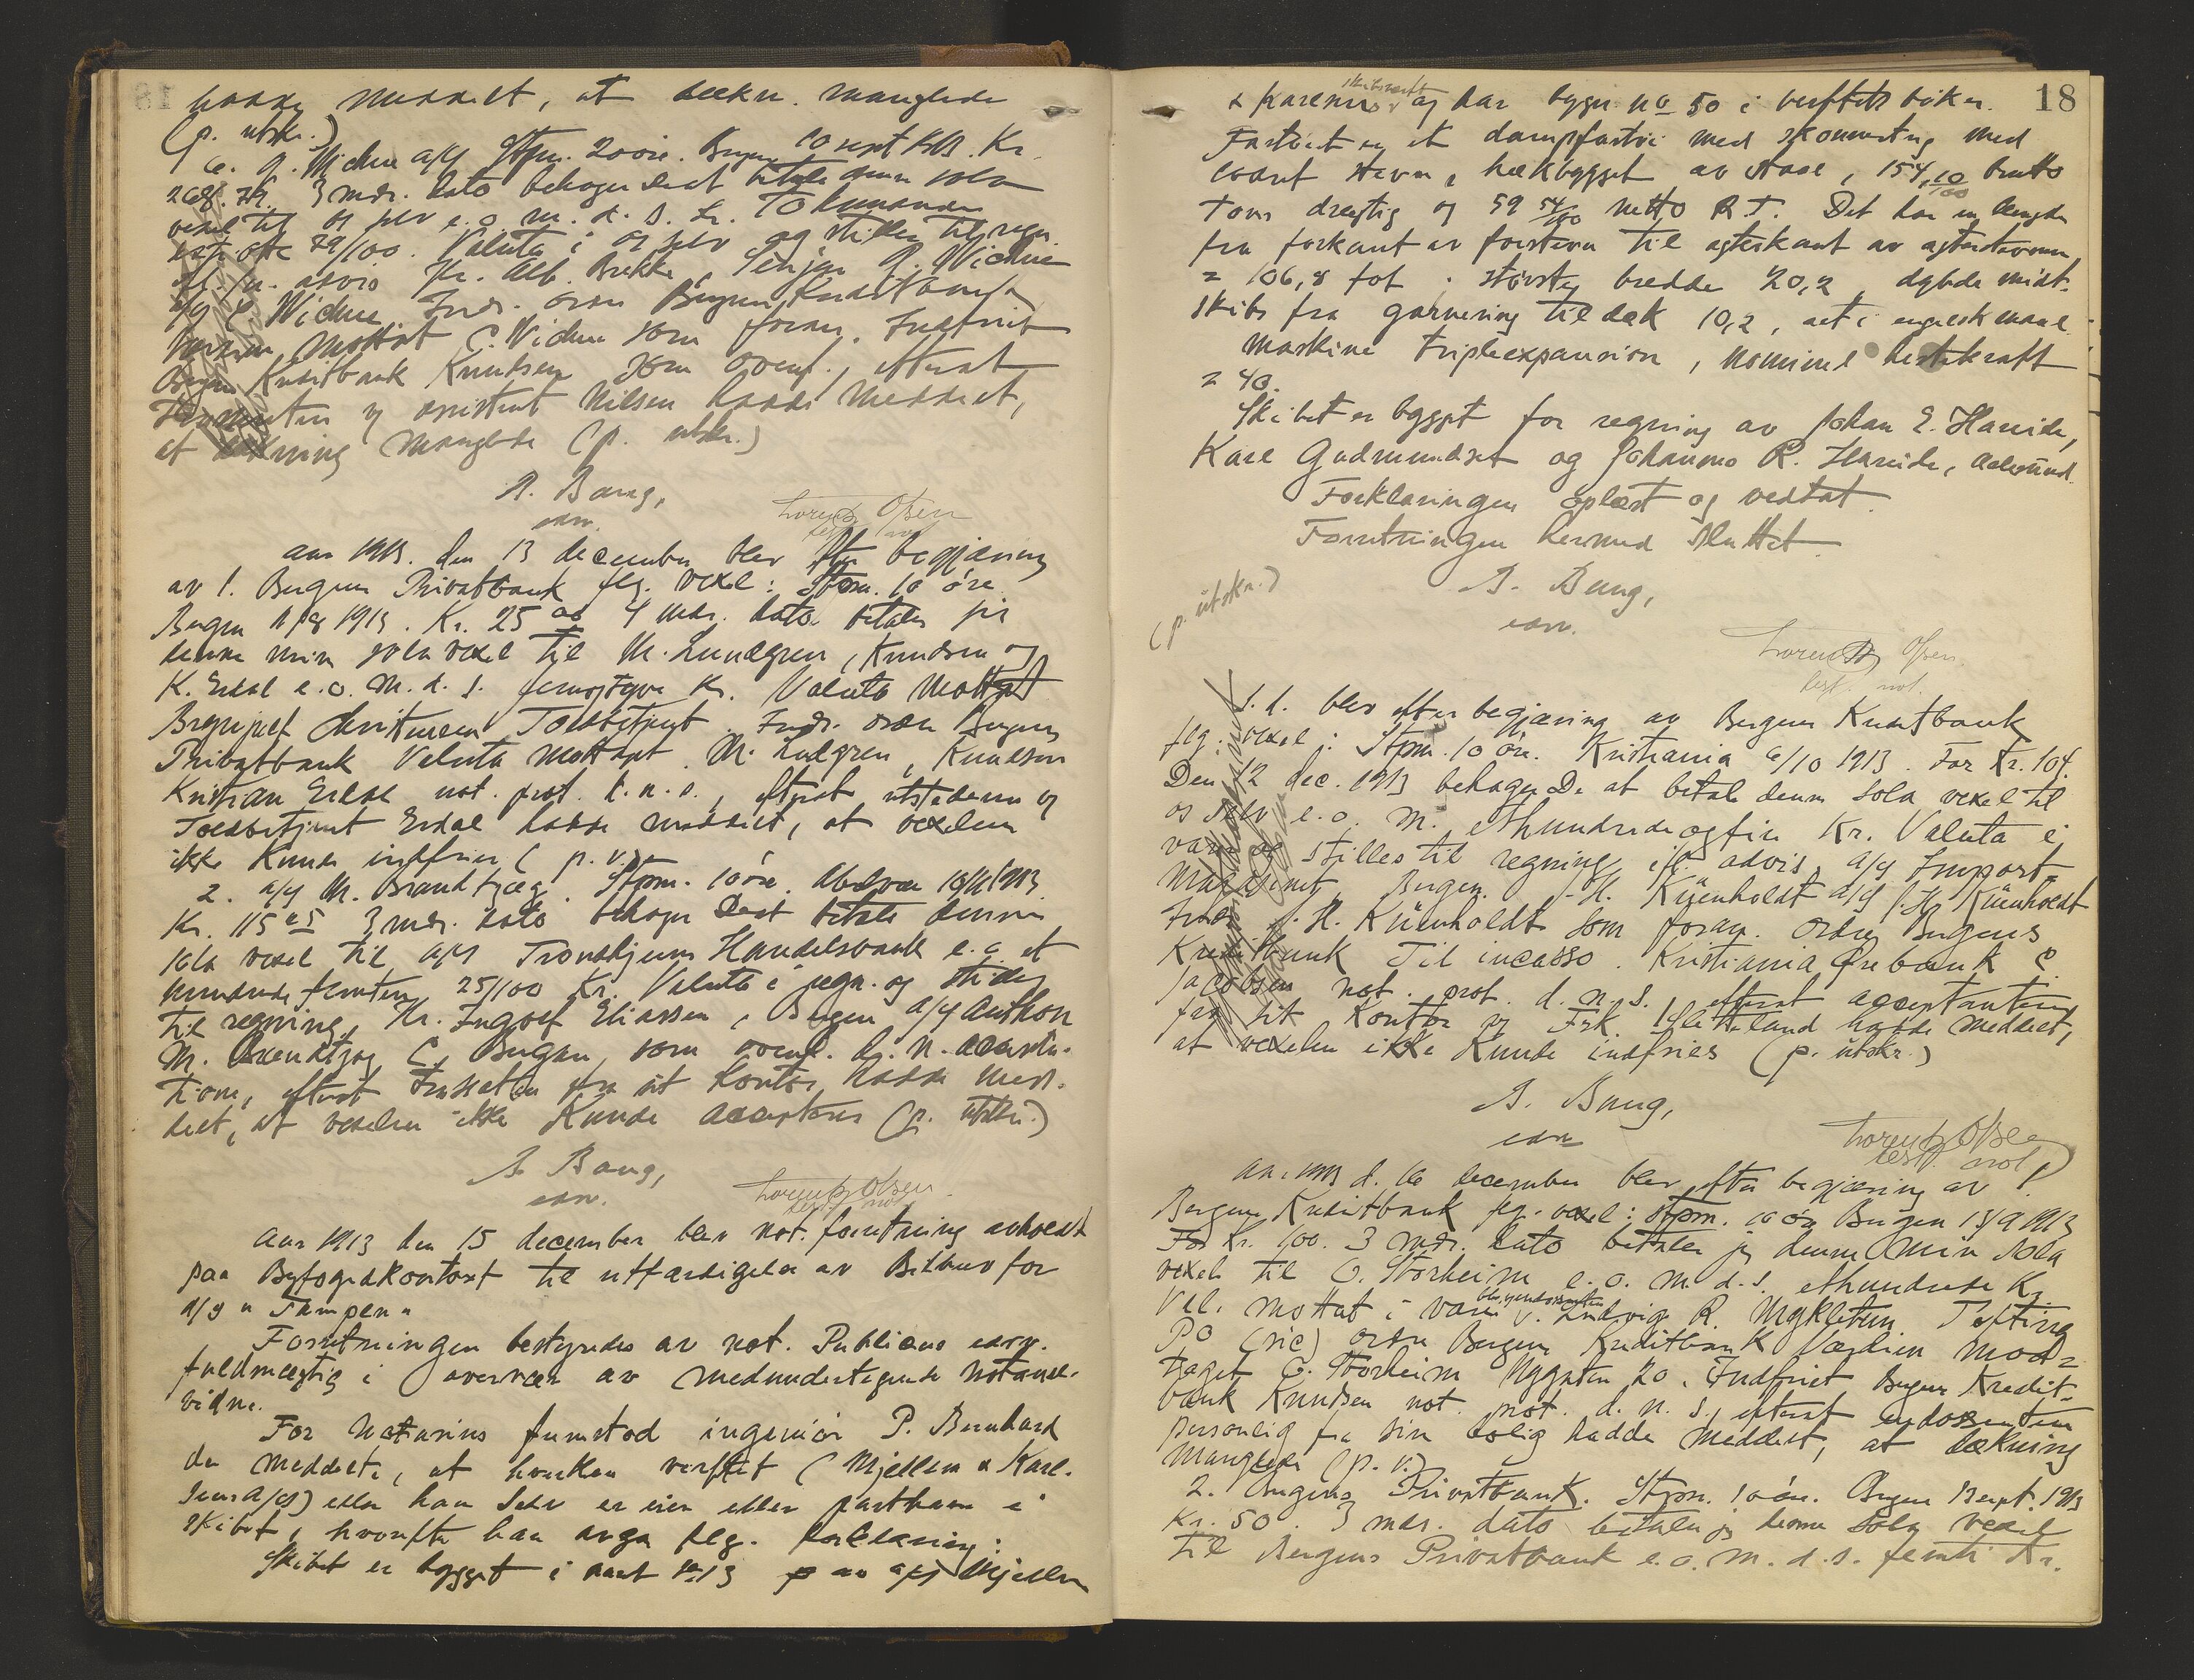 hadde meddelt, at dækn. manglede
(p. utskr.)
C. G. Widme a/y Stpm. 20 øre. Bergen 10 sept 1913. Kr.
268.79. 3 mdr. dato behager De at betale denne sola
vexel til os selv e.o. m. d. s. Kr. Tohundrede
otte 79/100. Valuta i os selv og stilles til regn.
advis Hr. Alb. Brekke, G. Widme
a/y C Widme Indr. ordre Bergens Kreditbank
mottat C. Widme som foran. Indfriet
Bergens Kreditbank Knudsen som ovenf., efterat
og assistent Nilsen hadde meddelt,
at dækning manglede (p. utskr.)
A. Bang,
edsv.
Lorentz Olsen
test. not.
Aar 1913. den 13 december blev efter begjæring
av 1. Bergens Privatbank flg. vexel: Stpm. 10 øre
Bergen 11/8 1913. Kr. 25 00 4 mdr. dato betaler jeg
denne min sola vexel til M. Lundgren, Knudsen og
K. Erdal e.o. m. d. s. femogtyve Kr. Valuta mottat
Christensen Toldbetjent. Indr. ordre Bergens
Privatbank Valuta mottat. M. Lundgren, Knudsen
Kristian Erdal not. prot. d. n. s., efterat utstederen og
Toldbetjent Erdal hadde meddelt, at vexelen
ikke kunde indfries (p. v.)
2. a/y M. Brandtzæg. Stpm. 10 øre. 10/11 1913
Kr. 115 25 3 mdr. dato behager De at betale denne
sola vexel til A/S Trondhjems Handelsbank e.o. et
hundrede femten 25/100 Kr. Valuta i regn. og stilles
til regning, Hr. Ingolf Eliassen, Bergen a/y Anthon
M. Brandtzæg C, Bergen, som ovenf. d. n. accepta-
tion, efterat trassaten fra sit kontor hadde med-
delt, at vexelen ikke kunde accepteres (p. utskr.)
A. Bang,
edsv.
Lorentz Olsen
test. not.
Aar 1913 den 15 december blev not. forretning avholdt
paa Byfogedkontoret til utfærdigelse av Bilbrev for
D/S "Tampen"
Forretningen bestyredes av not. Publicus edsv.
fuldmægtig i overvær av medundertegnede notarial-
vidne.
For Notarius fremstod ingeniør P. Bernhard
der meddelte, at hverken verftet (Mjellem & Karl-
sens A/S) eller han selv er eier eller parthaver i
skibet, hvorefter han avga flg. forklaring:
Skibet er bygget i aaret 1913 av A/S Mjellem
18
& Karlsens skibsverft og har bygn. no 50 i verftets bøker.
Fartøiet er et dampfartøi med skonnertrig med
lodret stevn, hækbygget av staal, 154,10/100 brutto
tons drægtig og 59 54/100 netto R T. Det har en længde
fra forkant av forstevn til agterkant av agterstevnen
= 106,8 fot, største bredde 20,2, dybde midt-
skibs fra garnering til dæk 10,2, alt i engelsk maal.
Maskine tripleexpansion, nominel hestekraft
= 40.
Skibet er bygget for regning av Johan E. Hareide,
Karl Gudmundset og Johannes R. Hareide, Aalesund.
Forklaringen oplæst og vedtat.
Forretningen hermed sluttet.
(p. utskr.)
A. Bang,
edsv.
Lorentz Olsen
test. not.
S. d. blev efter begjæring av Bergens Kreditbank
flg. vexel: Stpm. 10 øre. Kristiania 6/10 1913. For Kr. 104.
Den 12 dec. 1913 behager De at betale denne sola vexel til
os selv e.o. m. ethundredeogfire Kr. Valuta i
varer og stilles til regning ifl. advis, a/y Import-
Magasinet, Bergen. H. Küenholdt a/y H. Küenholdt
Indr. H. Küenholdt som foran. Ordre Bergens
Kreditbank til incasso. Kristiania Folkebank C
Jacobsen not. prot. d. n. s., efterat acceptanten
fra sit kontor og Frk. hadde meddelt,
at vexelen ikke kunde indfries (p. utskr.)
A. Bang,
edsv
Lorentz Olsen
test. not.
Aar 1913 d. 16 december blev efter begjæring av
Bergens Kreditbank flg. vexel: Stpm. 10 øre Bergen 13/9 1913
For Kr. 100. 3 mdr. dato betaler jeg denne min sola
vexel til O. Storheim e.o. m. d. s. ethundrede Kr.
Val. mottat i varer. Ludvig R. Mykletun
PO (sic) ordre Bergens Kreditbank Værdien mod-
taget O. Storheim Nygaten 20. Indfriet Bergens Kredit-
bank Knudsen not. prot. d. n. s., efterat endossenten
personlig fra sin bolig hadde meddelt, at dækning
manglede (p. v.)
2. Bergens Privatbank. Stpm. 10 øre. Bergen 13 sept. 1913
Kr. 50. 3 mdr. dato betaler jeg denne sola vexel
til Bergens Privatbank e.o. m. d. s. femti Kr.